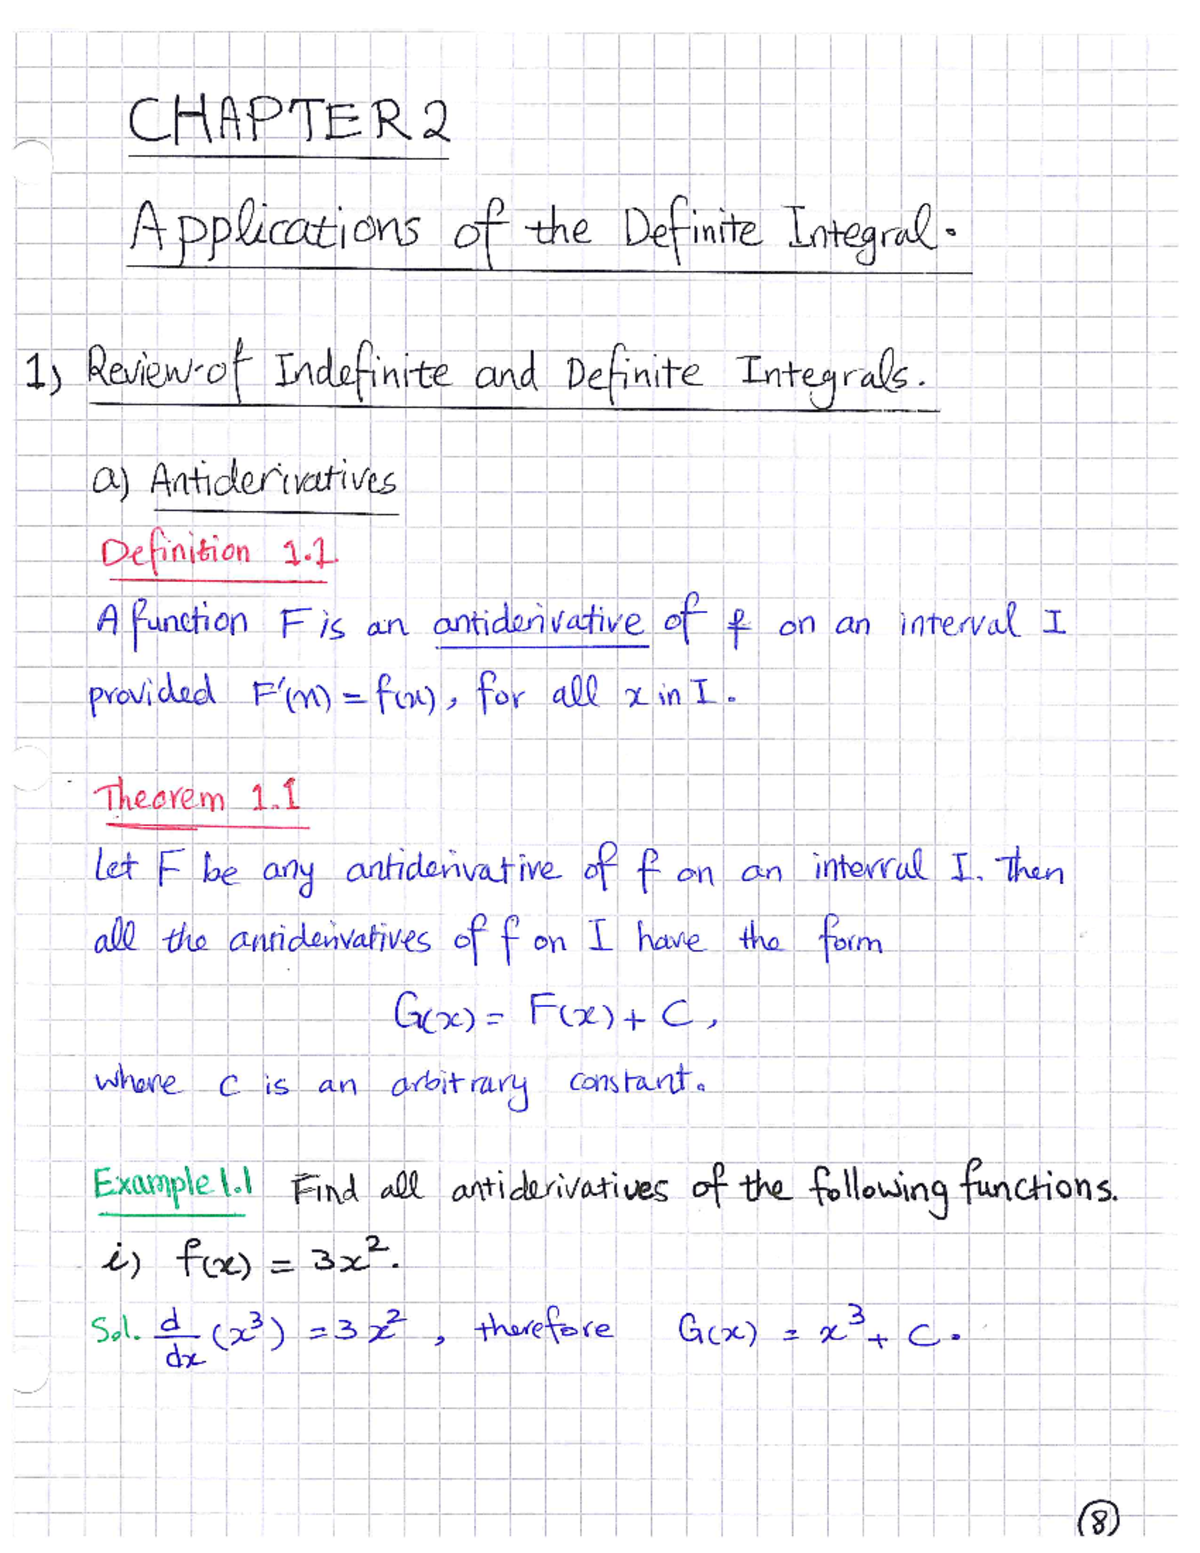 CHAPTER 2
Applications of the Definite Integral.
1) Review of Indefinite and Definite Integrals.
a) Antiderivatives
Definition 1.1
A function F is an antiderivative of f on an interval I
provided F'(x) = f(x), for all x in I.
Theorem 1.1
Let F be any antiderivative of f on an interval I. Then
all the antiderivatives of f on I have the form
G(x) = F(x) + C,
where C is an arbitrary constant.
Example 1.1 Find all antiderivatives of the following functions.
i) f(x) = 3x².
Sol. d/dx (x³) = 3x², therefore G(x) = x³ + C.
8